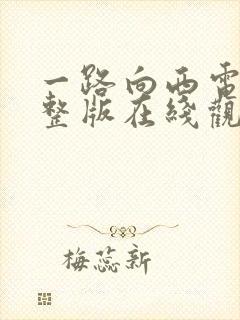 一路向西電
整版在綫觀
梅蕊新